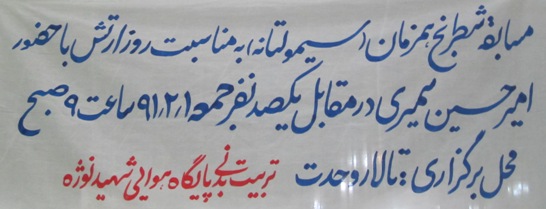 مسابقه شطرنج همزمان (سیمولتانه) به مناسبت روز ارتش با حضور
امیرحسین ممیری در مقابل یکصد نفر جمعه ۹۱/۲/۱ ساعت ۹ صبح
محل برگزاری : تالار وحدت تربیت بدنی پایگاه هوایی شهید نوژه